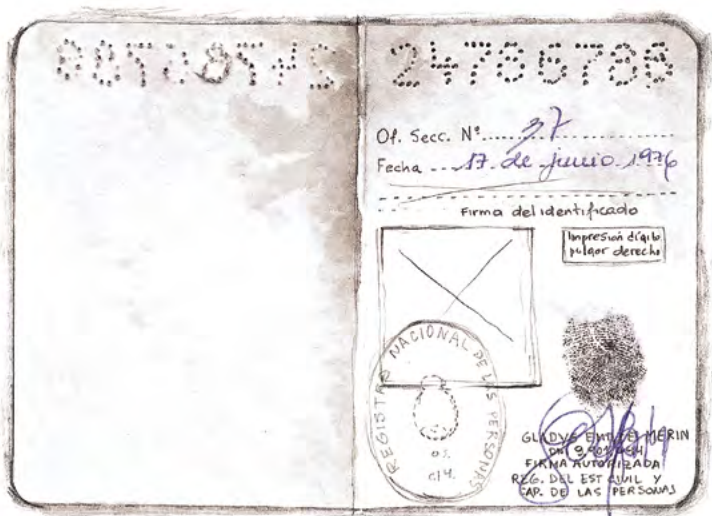 24786788
Of. Secc. Nº 37
Fecha 17 de junio 1976
Firma del identificado
Impresión dígito
pulgar derecho
REGISTRO NACIONAL DE LAS PERSONAS
GLADYS MERIN
FIRMA AUTORIZADA
REG. DEL EST CIVIL Y
CAP. DE LAS PERSONAS